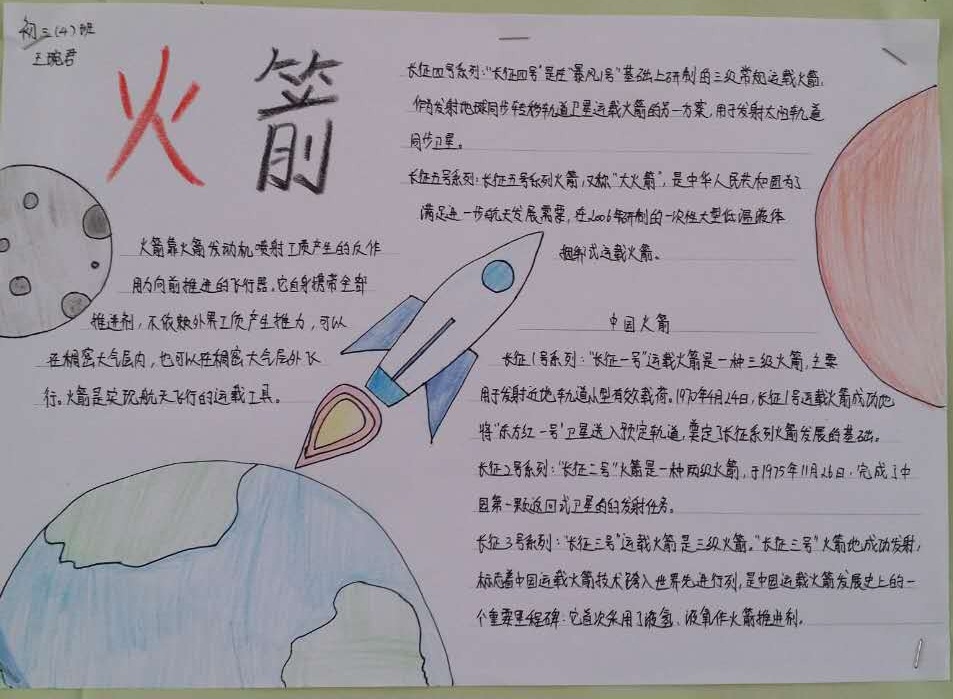 初三(4)班
王琬君
火箭
火箭靠火箭发动机喷射工质产生的反作
用力向前推进的飞行器。它自身携带全部
推进剂，不依赖外界工质产生推力，可以
在稠密大气层内，也可以在稠密大气层外飞
行。火箭是实现航天飞行的运载工具。
长征四号系列："长征四号"是在"暴风1号"基础上研制的三级常规运载火箭，
作为发射地球同步转移轨道卫星运载火箭的另一方案，用于发射太阳轨道
同步卫星。
长征五号系列：长征五号系列火箭，又称"大火箭"，是中华人民共和国为了
满足进一步航天发展需要，在2006年研制的一次性大型低温液体
捆绑式运载火箭。
中国火箭
长征1号系列："长征一号"运载火箭是一种三级火箭，主要
用于发射近地轨道小型有效载荷。1970年4月24日，长征1号运载火箭成功地
将"东方红一号"卫星送入预定轨道，奠定了长征系列火箭发展的基础。
长征2号系列："长征二号"火箭是一种两级火箭，于1975年11月26日，完成了中
国第一颗返回式卫星的的发射任务。
长征3号系列："长征三号"运载火箭是三级火箭。"长征三号"火箭地成功发射，
标志着中国运载火箭技术跨入世界先进行列，是中国运载火箭发展史上的一
个重要里程碑：它首次采用了液氢、液氧作火箭推进剂。